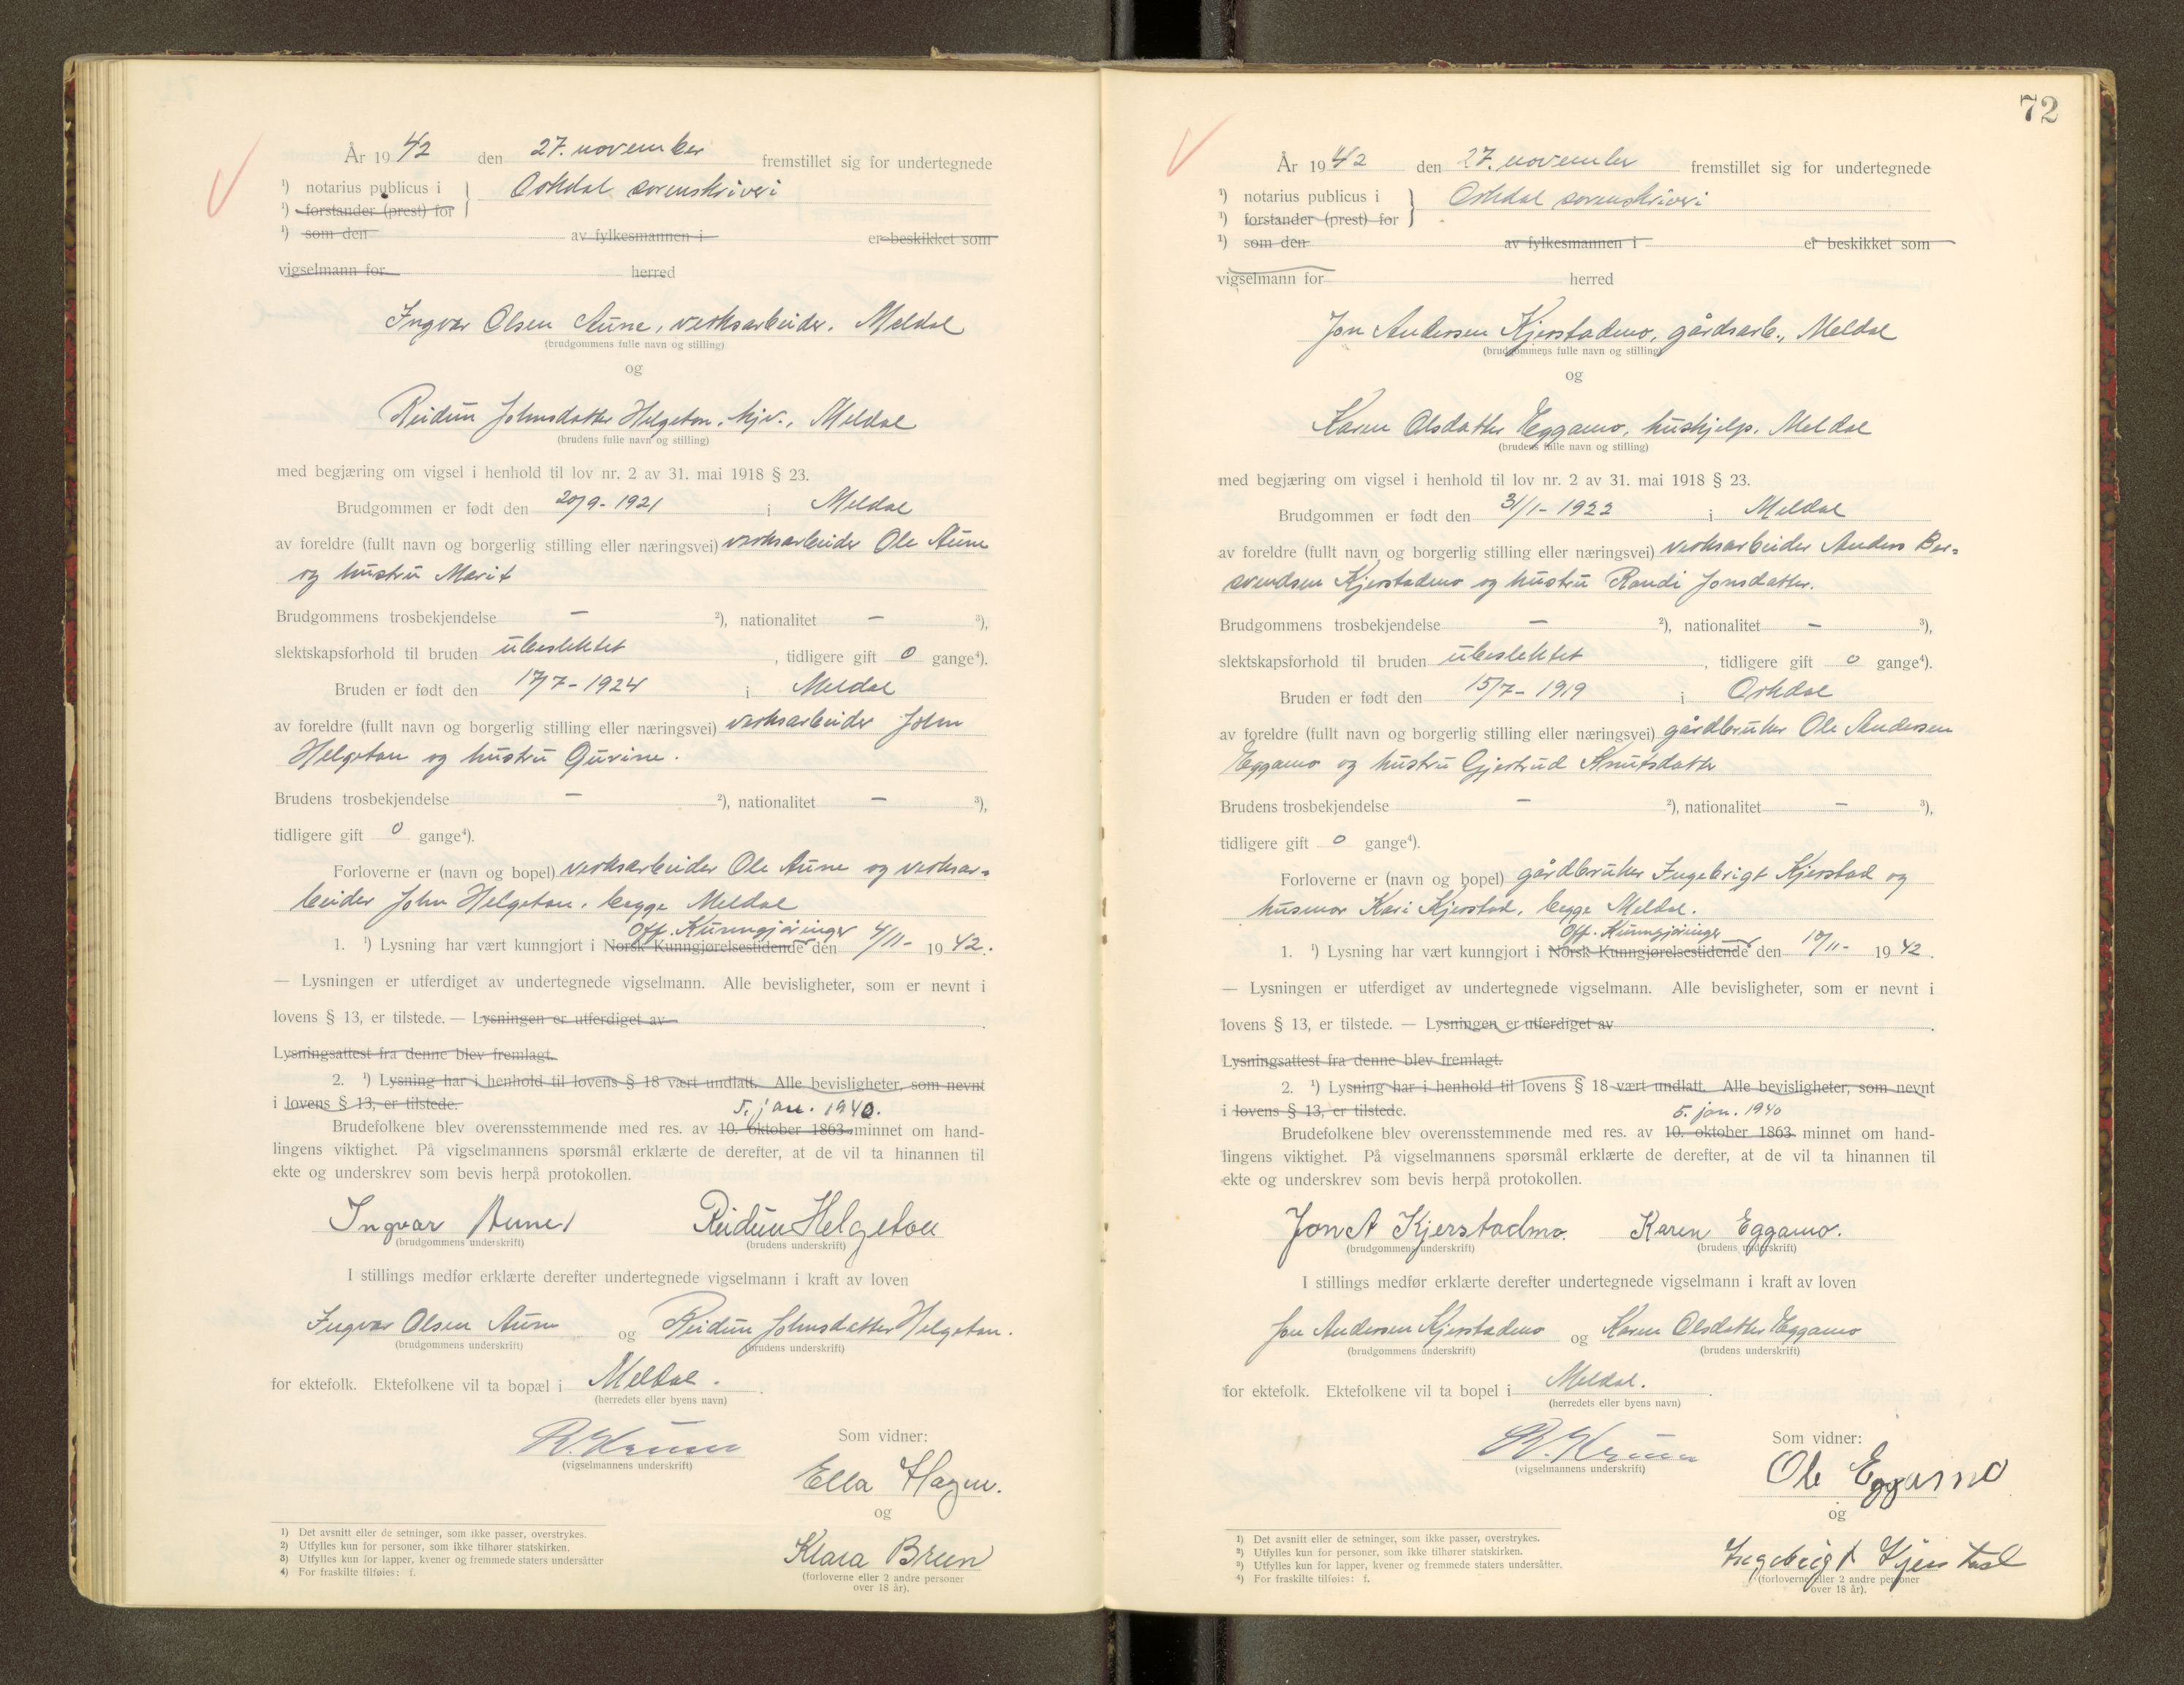 År 1942 den 27. november fremstillet sig for undertegnede
¹) notarius publicus i } Orkdal sorenskriveri
¹) forstander (prest) for
¹) som den av fylkesmannen i er beskikket som
vigselmann for herred
Ingvar Olsen Aune, verksarbeider, Meldal
(brudgommens fulle navn og stilling)
og
Reidun Johnsdatter Helgeton, hjv., Meldal
(brudens fulle navn og stilling)
med begjæring om vigsel i henhold til lov nr. 2 av 31. mai 1918 § 23.
Brudgommen er født den 20/9-1921 i Meldal
av foreldre (fullt navn og borgerlig stilling eller næringsvei) verksarbeider Ole Aune
og hustru Marit
Brudgommens trosbekjendelse — ²), nationalitet — ³),
slektskapsforhold til bruden ubeslektet, tidligere gift 0 gange⁴).
Bruden er født den 17/7-1924 i Meldal
av foreldre (fullt navn og borgerlig stilling eller næringsvei) verksarbeider John
Helgeton og hustru Gurine.
Brudens trosbekjendelse — ²), nationalitet — ³),
tidligere gift 0 gange⁴).
Forloverne er (navn og bopel) verksarbeider Ole Aune og verksar-
beider John Helgeton, begge Meldal
Off. Kunngjøringer
1. ¹) Lysning har vært kunngjort i Norsk Kunngjørelsestidende den 4/11- 1942.
— Lysningen er utferdiget av undertegnede vigselmann. Alle bevisligheter, som er nevnt i
lovens § 13, er tilstede. — Lysningen er utferdiget av
Lysningsattest fra denne blev fremlagt.
2. ¹) Lysning har i henhold til lovens § 18 vært undlatt. Alle bevisligheter, som nevnt
i lovens § 13, er tilstede.
5. jan. 1940.
Brudefolkene blev overensstemmende med res. av 10. oktober 1863 minnet om hand-
lingens viktighet. På vigselmannens spørsmål erklærte de derefter, at de vil ta hinannen til
ekte og underskrev som bevis herpå protokollen.
Ingvar Aune Reidun Helgeton
(brudgommens underskrift) (brudens underskrift)
I stillings medfør erklærte derefter undertegnede vigselmann i kraft av loven
Ingvar Olsen Aune og Reidun Johnsdatter Helgeton.
(brudgommens underskrift) (brudens underskrift)
for ektefolk. Ektefolkene vil ta bopæl i Meldal.
(herredets eller byens navn)
(vigselmannens underskrift)
Som vidner:
Ella Hagen.
og
Klara Breen
(forloverne eller 2 andre personer
over 18 år).
1) Det avsnitt eller de setninger, som ikke passer, overstrykes.
2) Utfylles kun for personer, som ikke tilhører statskirken.
3) Utfylles kun for lapper, kvener og fremmede staters undersåtter
4) For fraskilte tilføies: f.
72
År 1942 den 27. november fremstillet sig for undertegnede
¹) notarius publicus i } Orkdal sorenskriveri
¹) forstander (prest) for
¹) som den av fylkesmannen i er beskikket som
vigselmann for herred
Jon Andersen Kjerstadmo, gårdsarb., Meldal
(brudgommens fulle navn og stilling)
og
Karen Olsdatter Eggamo, hushjelp, Meldal
(brudens fulle navn og stilling)
med begjæring om vigsel i henhold til lov nr. 2 av 31. mai 1918 § 23.
Brudgommen er født den 31/1-1922 i Meldal
av foreldre (fullt navn og borgerlig stilling eller næringsvei) verksarbeider Anders Ber-
svendsen Kjerstadmo og hustru Randi Jonsdatter.
Brudgommens trosbekjendelse — ²), nationalitet — ³),
slektskapsforhold til bruden ubeslektet, tidligere gift 0 gange⁴).
Bruden er født den 15/7-1919 i Orkdal
av foreldre (fullt navn og borgerlig stilling eller næringsvei) gårdbruker Ole Andersen
Eggamo og hustru Gjertrud Knutsdatter
Brudens trosbekjendelse — ²), nationalitet — ³),
tidligere gift 0 gange⁴).
Forloverne er (navn og bopel) gårdbruker Ingebrigt Kjerstad og
husmor Kari Kjerstad, begge Meldal.
Off. Kunngjøringer
1. ¹) Lysning har vært kunngjort i Norsk Kunngjørelsestidende den 10/11- 1942.
— Lysningen er utferdiget av undertegnede vigselmann. Alle bevisligheter, som er nevnt i
lovens § 13, er tilstede. — Lysningen er utferdiget av
Lysningsattest fra denne blev fremlagt.
2. ¹) Lysning har i henhold til lovens § 18 vært undlatt. Alle bevisligheter, som nevnt
i lovens § 13, er tilstede.
5. jan. 1940
Brudefolkene blev overensstemmende med res. av 10. oktober 1863 minnet om hand-
lingens viktighet. På vigselmannens spørsmål erklærte de derefter, at de vil ta hinannen til
ekte og underskrev som bevis herpå protokollen.
Jon A Kjerstadmo. Karen Eggamo.
(brudgommens underskrift) (brudens underskrift)
I stillings medfør erklærte derefter undertegnede vigselmann i kraft av loven
Jon Andersen Kjerstadmo og Karen Olsdatter Eggamo
(brudgommens underskrift) (brudens underskrift)
for ektefolk. Ektefolkene vil ta bopel i Meldal.
(herredets eller byens navn)
(vigselmannens underskrift)
Som vidner:
Ole Eggamo
og
Ingebrigt Kjerstad
(forloverne eller 2 andre personer
over 18 år).
1) Det avsnitt eller de setninger, som ikke passer, overstrykes.
2) Utfylles kun for personer, som ikke tilhører statskirken.
3) Utfylles kun for lapper, kvener og fremmede staters undersåtter.
4) For fraskilte tilføies: f.